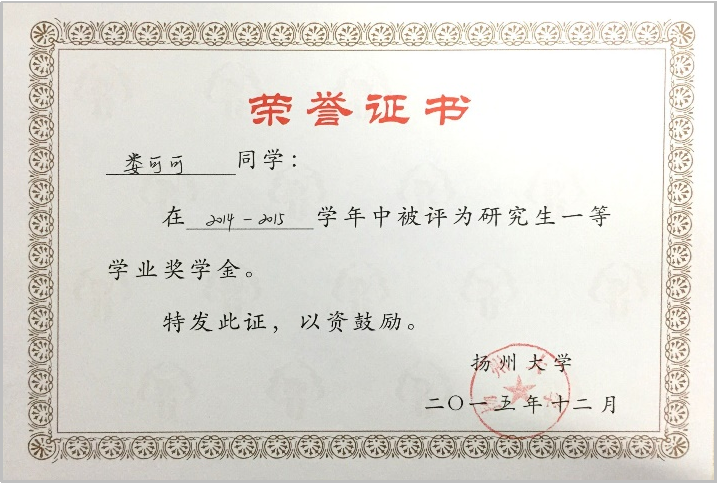 荣誉证书
娄可可同学：
在2014-2015学年中被评为研究生一等
学业奖学金。
特发此证，以资鼓励。
扬州大学
二〇一五年十二月